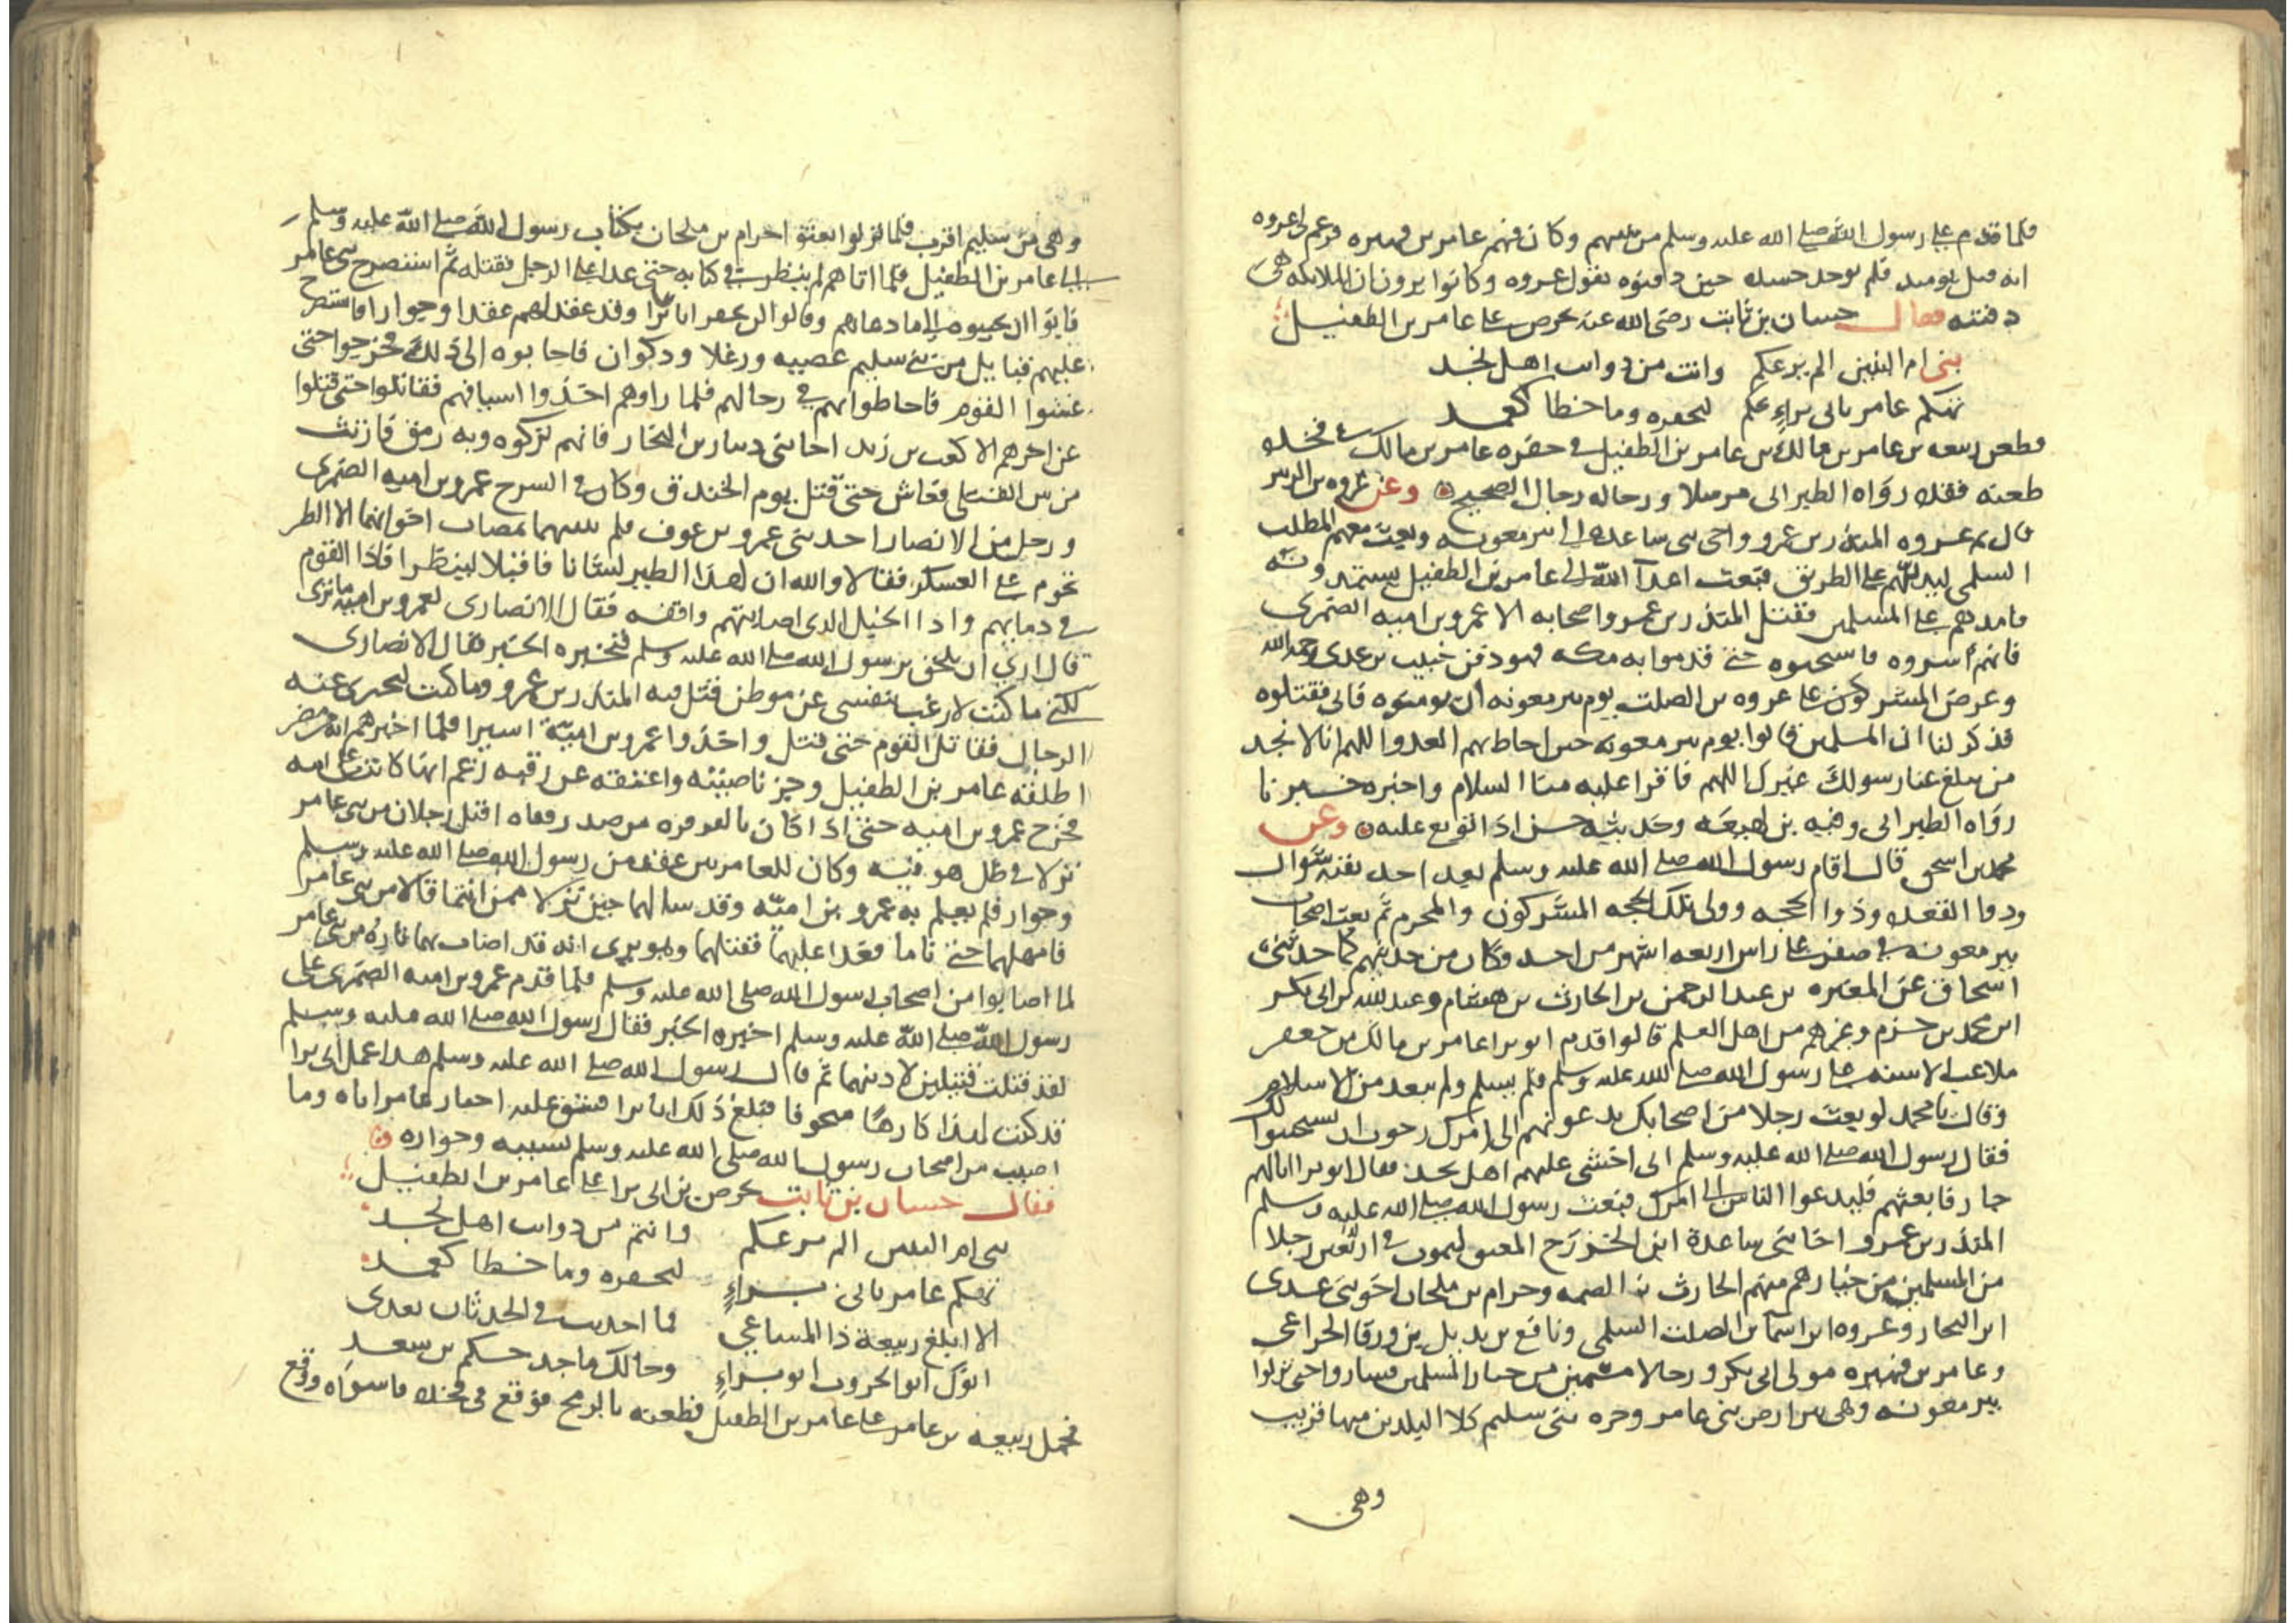 فلما قدم على رسول الله صلى الله عليه وسلم من منهم وكان فيهم عامر بن فهيرة فزعم لى عروه
انه قتل يوميد فلم يوجد جسده حين دفنوه يقول عروه وكانوا يرون ان الملايكه هى
دفنته فقال حسان بن ثابت رضى الله عنه يحرض على عامر بن الطفيل
بنى ام البنين الم يرعكم وانت من ذوايب اهل نجد
تهكم عامر بابى براءٍ عليكم ليخفره وما خطا كعمد
فطعن ربيعه بن عامر بن مالك بن عامر بن الطفيل فى حفره عامر بن مالك فى فخذه
طعنه فقده رواه الطبرانى مرسلا ورجاله رجال الصحيح وعن عروه بن الزبير
قال بعث المنذر بن عمرو واخى بنى ساعده الى بير معونه وبعث معهم المطلب
السلمى ليدلهم على الطريق فبعث اعدآ الله الى عامر بن الطفيل يستمدونه
فامدهم على المسلمين فقتل المنذر بن عمرو واصحابه الا عمرو بن اميه الضمرى
فانهم أسروه فاستحيوه حتى قدموا به مكه فهو دفن خبيب بن عدى رحمه الله
وعرض المشركون على عروه بن الصلت يوم بير معونه ان يومنوه فابى فقتلوه
فذكر لنا ان المسلمين قالوا يوم بير معونه حين احاط بهم العدو اللهم انا لا نجد
من يبلغ عنا رسولك غيرك اللهم فاقرا عليه منا السلام واخبره خبرنا
رواه الطبرانى وفيه بن لهيعه وحديثه حسن اذا توبع عليه وعن
محمد بن اسحق قال اقام رسول الله صلى الله عليه وسلم بعد احد بقيه شوال
وذوا القعده وذوا الحجه وولى تلك الحجه المشركون والمحرم ثم بعث اصحاب
بير معونه فى صفر على راس اربعه اشهر من احد وكان من حديثهم كما حدثنى
اسحاق عن المغيره بن عبد الرحمن بن الحارث بن هشام وعبد الله بن ابى بكر
ابن محمد بن حزم وغيرهم من اهل العلم قالوا قدم ابو برا عامر بن مالك بن جعفر
ملاعب الاسنه على رسول الله صلى الله عليه وسلم فلم يسلم ولم يبعد من الاسلام
وقال يا محمد لو بعث رجلا من اصحابك يدعونهم الى امرك رجوت ان يستجيبوا لك
فقال رسول الله صلى الله عليه وسلم انى اخشى عليهم اهل نجد فقال ابو برا انا لهم
جار فابعثهم فليدعوا الناس الى امرك فبعث رسول الله صلى الله عليه وسلم
المنذر بن عمرو اخا بنى ساعدة ابن الخزرج المعنق ليموت فى اربعين رجلا
من المسلمين من خيارهم منهم الحارث بن الصمه وحرام بن ملحان اخو بنى عدى
ابن النجار وعروه ابن اسما بن الصلت السلمى ونافع بن بديل بن ورقا الخزاعى
وعامر بن فهيره مولى ابى بكر ورجالا مسمين من خيار المسلمين فساروا حتى نزلوا
بير معونه وهى بين ارض بنى عامر وحره بنى سليم كلا البلدين منها قريب
وهى
وهى من سليم اقرب فلما نزلوا بعثو احرام بن ملحان بكتاب رسول الله صلى الله عليه وسلم
الى عامر بن الطفيل فلما اتاهم لم ينظر فى كتابه حتى عدا على الرجل فقتله ثم استصرخ بنى عامر
فابوا ان يجيبوه الى ما دعاهم وقالوا لن نخفر ابا برا وقد عقد لهم عقدا وجوارا فاستصرخ
عليهم قبايل من بنى سليم عصيه ورعلا وذكوان فاجابوه الى ذلك فخرجوا حتى
غشوا القوم فاحاطوا بهم فى رحالهم فلما راوهم اخذوا اسيافهم فقاتلوا حتى قتلوا
عن اخرهم الا كعب بن زيد اخا بنى دينار بن النجار فانهم تركوه وبه رمق فارتث
من بين القتلى فعاش حتى قتل يوم الخندق وكان فى السرح عمرو بن اميه الضمرى
ورجل من الانصار احد بنى عمرو بن عوف فلم ينبيهما بمصاب اخوانهما الا الطير
تحوم على العسكر فقالا والله ان لهذا الطير لشانا فاقبلا لينظرا فاذا القوم
فى دمايهم واذا الخيل الذى اصابتهم واقفه فقال الانصارى لعمرو بن اميه ما ترى
قال ارى ان نلحق برسول الله صلى الله عليه وسلم فنخبره الخبر فقال الانصارى
لكنى ما كنت لارغب بنفسى عن موطن قتل فيه المنذر بن عمرو وما كنت لتخبرى عنه
الرجال فقاتل القوم حتى قتل واخذوا عمرو بن اميّة اسيرا فلما اخبرهم انه من مضر
اطلقه عامر بن الطفيل وجز ناصيته واعتقه عن رقبه زعم انها كانت على امه
فخرج عمرو بن اميه حتى اذا كان بالقرقره من صدر قناه اقبل رجلان من بنى عامر
نزلا فى ظل هو فيه وكان للعامريين عقد من رسول الله صلى الله عليه وسلم
وجوار فلم يعلم به عمرو بن اميّه وقد سالهما حين نزلا ممن انتما قالا من بنى عامر
فامهلهما حتى ناما فعدا عليهما فقتلهما وهو يرى انه قد اصاب بهما ثاره من بنى عامر
لما اصابوا من اصحاب رسول الله صلى الله عليه وسلم فلما قدم عمرو بن اميه الضمرى على
رسول الله صلى الله عليه وسلم اخبره الخبر فقال رسول الله صلى الله عليه وسلم
لقد قتلت قتيلين لادينهما ثم قال رسول الله صلى الله عليه وسلم هذا عمل ابى برا
قد كنت لهذا كارهًا متخوفا فبلغ ذلك ابا برا فشق عليه اخفار عامر اياه وما
اصيب من اصحاب رسول الله صلى الله عليه وسلم بسببه وجواره
فقال حسان بن ثابت يحرض بن ابى برا على عامر بن الطفيل
بنى ام البنين الم يرعكم وانتم من ذوايب اهل نجد
تهكم عامر بابى براءٍ ليخفره وما خطا كعمد
الا ابلغ ربيعة ذا المساعي فما احدثت فى الحدثان بعدى
ابوك ابو الحروب ابو براءٍ وخالك ماجد حكم بن سعد
فحمل ربيعه بن عامر على عامر بن الطفيل فطعنه بالرمح فوقع فى فخذه فاشواه ووقع